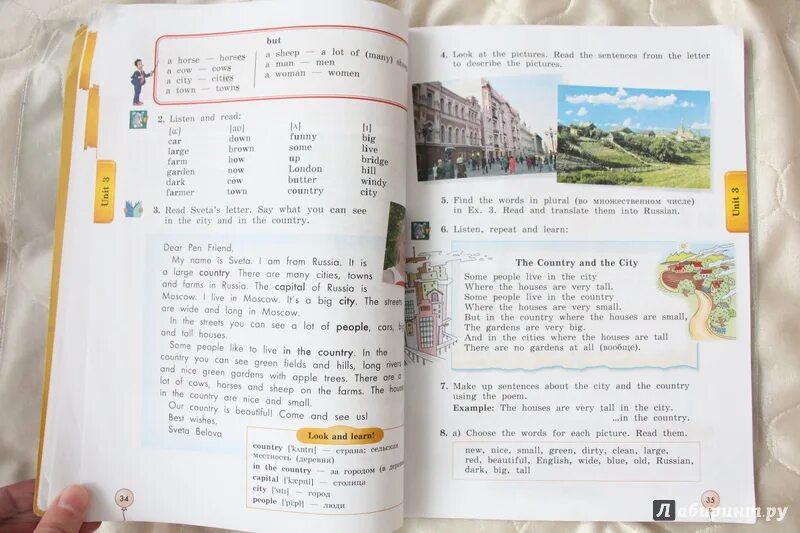 but
a horse — horses
a cow — cows
a city — cities
a town — towns
a sheep — a lot of (many)
a man — men
a woman — women
2. Listen and read:
[ɑ:] [aʊ] [ʌ] [ɪ]
car down funny big
large brown some live
farm how up bridge
garden now London hill
dark cow butter windy
farmer town country city
Unit 3
3. Read Sveta's letter. Say what you can see
in the city and in the country.
Dear Pen Friend,
My name is Sveta. I am from Russia. It is
a large country. There are many cities, towns
and farms in Russia. The capital of Russia is
Moscow. I live in Moscow. It's a big city. The streets
are wide and long in Moscow.
In the streets you can see a lot of people, cars,
and tall houses.
Some people like to live in the country. In the
country you can see green fields and hills, long rivers
and nice green gardens with apple trees. There are a
lot of cows, horses and sheep on the farms. The
in the country are nice and small.
Our country is beautiful! Come and see us!
Best wishes,
Sveta Belova
Look and learn!
country ['kʌntri] — страна; сельская
местность (деревня)
in the country — за городом (в
capital ['kæpɪtl] — столица
city ['sɪti] — город
people ['pi:pl] — люди
34
4. Look at the pictures. Read the sentences from the letter
to describe the pictures.
5. Find the words in plural (во множественном числе)
in Ex. 3. Read and translate them into Russian.
6. Listen, repeat and learn:
The Country and the City
Some people live in the city
Where the houses are very tall.
Some people live in the country
Where the houses are very small.
But in the country where the houses are small,
The gardens are very big.
And in the cities where the houses are tall
There are no gardens at all (вообще).
Unit 3
7. Make up sentences about the city and the country
using the poem.
Example: The houses are very tall in the city.
...in the country.
8. a) Choose the words for each picture. Read them.
new, nice, small, green, dirty, clean, large,
red, beautiful, English, wide, blue, old, Russian,
dark, big, tall
35
Лабиринт.ру